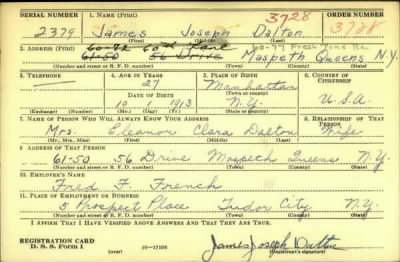 SERIAL NUMBER 1. NAME (Print) 3728 ORDER NUMBER
2379 James Joseph Dalton 3728
(First) (Middle) (Last)
2. ADDRESS (Print) 60-42 60th Lane 60-77 Fresh Pond Rd.
61-50 56 Drive Maspeth Queens N.Y.
(Number and street or R. F. D. number) (Town) (County) (State)
3. TELEPHONE 4. AGE IN YEARS 5. PLACE OF BIRTH 6. COUNTRY OF CITIZENSHIP
27 Manhattan
DATE OF BIRTH (Town or county)
10 1 1913 N.Y. U.S.A.
(Exchange) (Number) (Mo.) (Day) (Yr.) (State or country)
7. NAME OF PERSON WHO WILL ALWAYS KNOW YOUR ADDRESS 8. RELATIONSHIP OF THAT PERSON
Mrs. Eleanor Clara Dalton Wife
(Mr., Mrs., Miss) (First) (Middle) (Last)
9. ADDRESS OF THAT PERSON
61-50 56 Drive Maspeth Queens N.Y.
(Number and street or R. F. D. number) (Town) (County) (State)
10. EMPLOYER'S NAME
Fred F. French
11. PLACE OF EMPLOYMENT OR BUSINESS
5 Prospect Place Tudor City N.Y.
(Number and street or R. F. D. number) (Town) (County) (State)
I AFFIRM THAT I HAVE VERIFIED ABOVE ANSWERS AND THAT THEY ARE TRUE.
REGISTRATION CARD
D. S. S. Form 1 (over) 16—17105 James Joseph Dalton
(Registrant's signature)